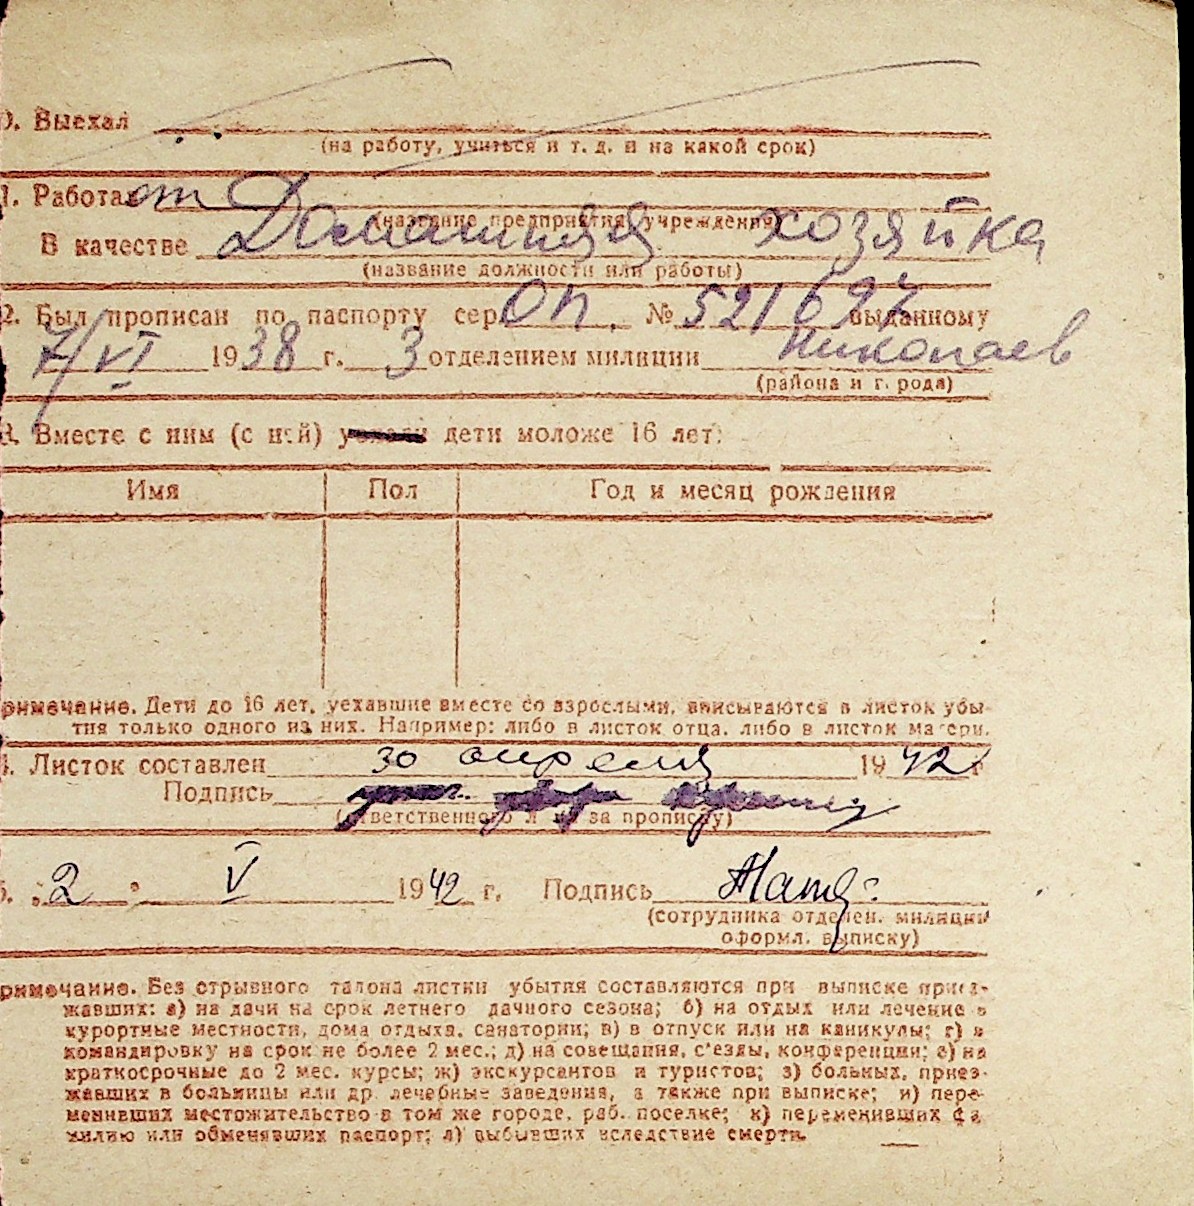 0. Выехал
(на работу, учиться и т. д. и на какой срок)
1. Работа
(название предприятия, учреждения)
В качестве Домашняя хозяйка
(название должности или работы)
2. Был прописан по паспорту сер. ОП. № 521697 выданному
7/VI 1938 г. 3 отделением милиции Николаев
(района и г. рода)
3. Вместе с ним (с ней) уехали дети моложе 16 лет:
Имя Пол Год и месяц рождения
римечание. Дети до 16 лет, уехавшие вместе со взрослыми, вписываются в листок убы-
тия только одного из них. Например: либо в листок отца, либо в листок матери.
4. Листок составлен 30 апреля 1942 г
Подпись
(ответственного л за прописку)
5. "2" V 1942 г. Подпись
(сотрудника отделен. милиции
оформл. выписку)
римечание. Без отрывного талона листки убытия составляются при выписке приез-
жавших: а) на дачи на срок летнего дачного сезона; б) на отдых или лечение в
курортные местности, дома отдыха, санатории; в) в отпуск или на каникулы; г) в
командировку на срок не более 2 мес.; д) на совещания, с'езды, конференции; е) на
краткосрочные до 2 мес. курсы; ж) экскурсантов и туристов; з) больных, приез-
жавших в больницы или др. лечебные заведения, а также при выписке; и) пере-
менивших местожительство в том же городе, раб. поселке; к) переменивших фа
милию или обменявших паспорт; л) выбывших вследствие смерти.